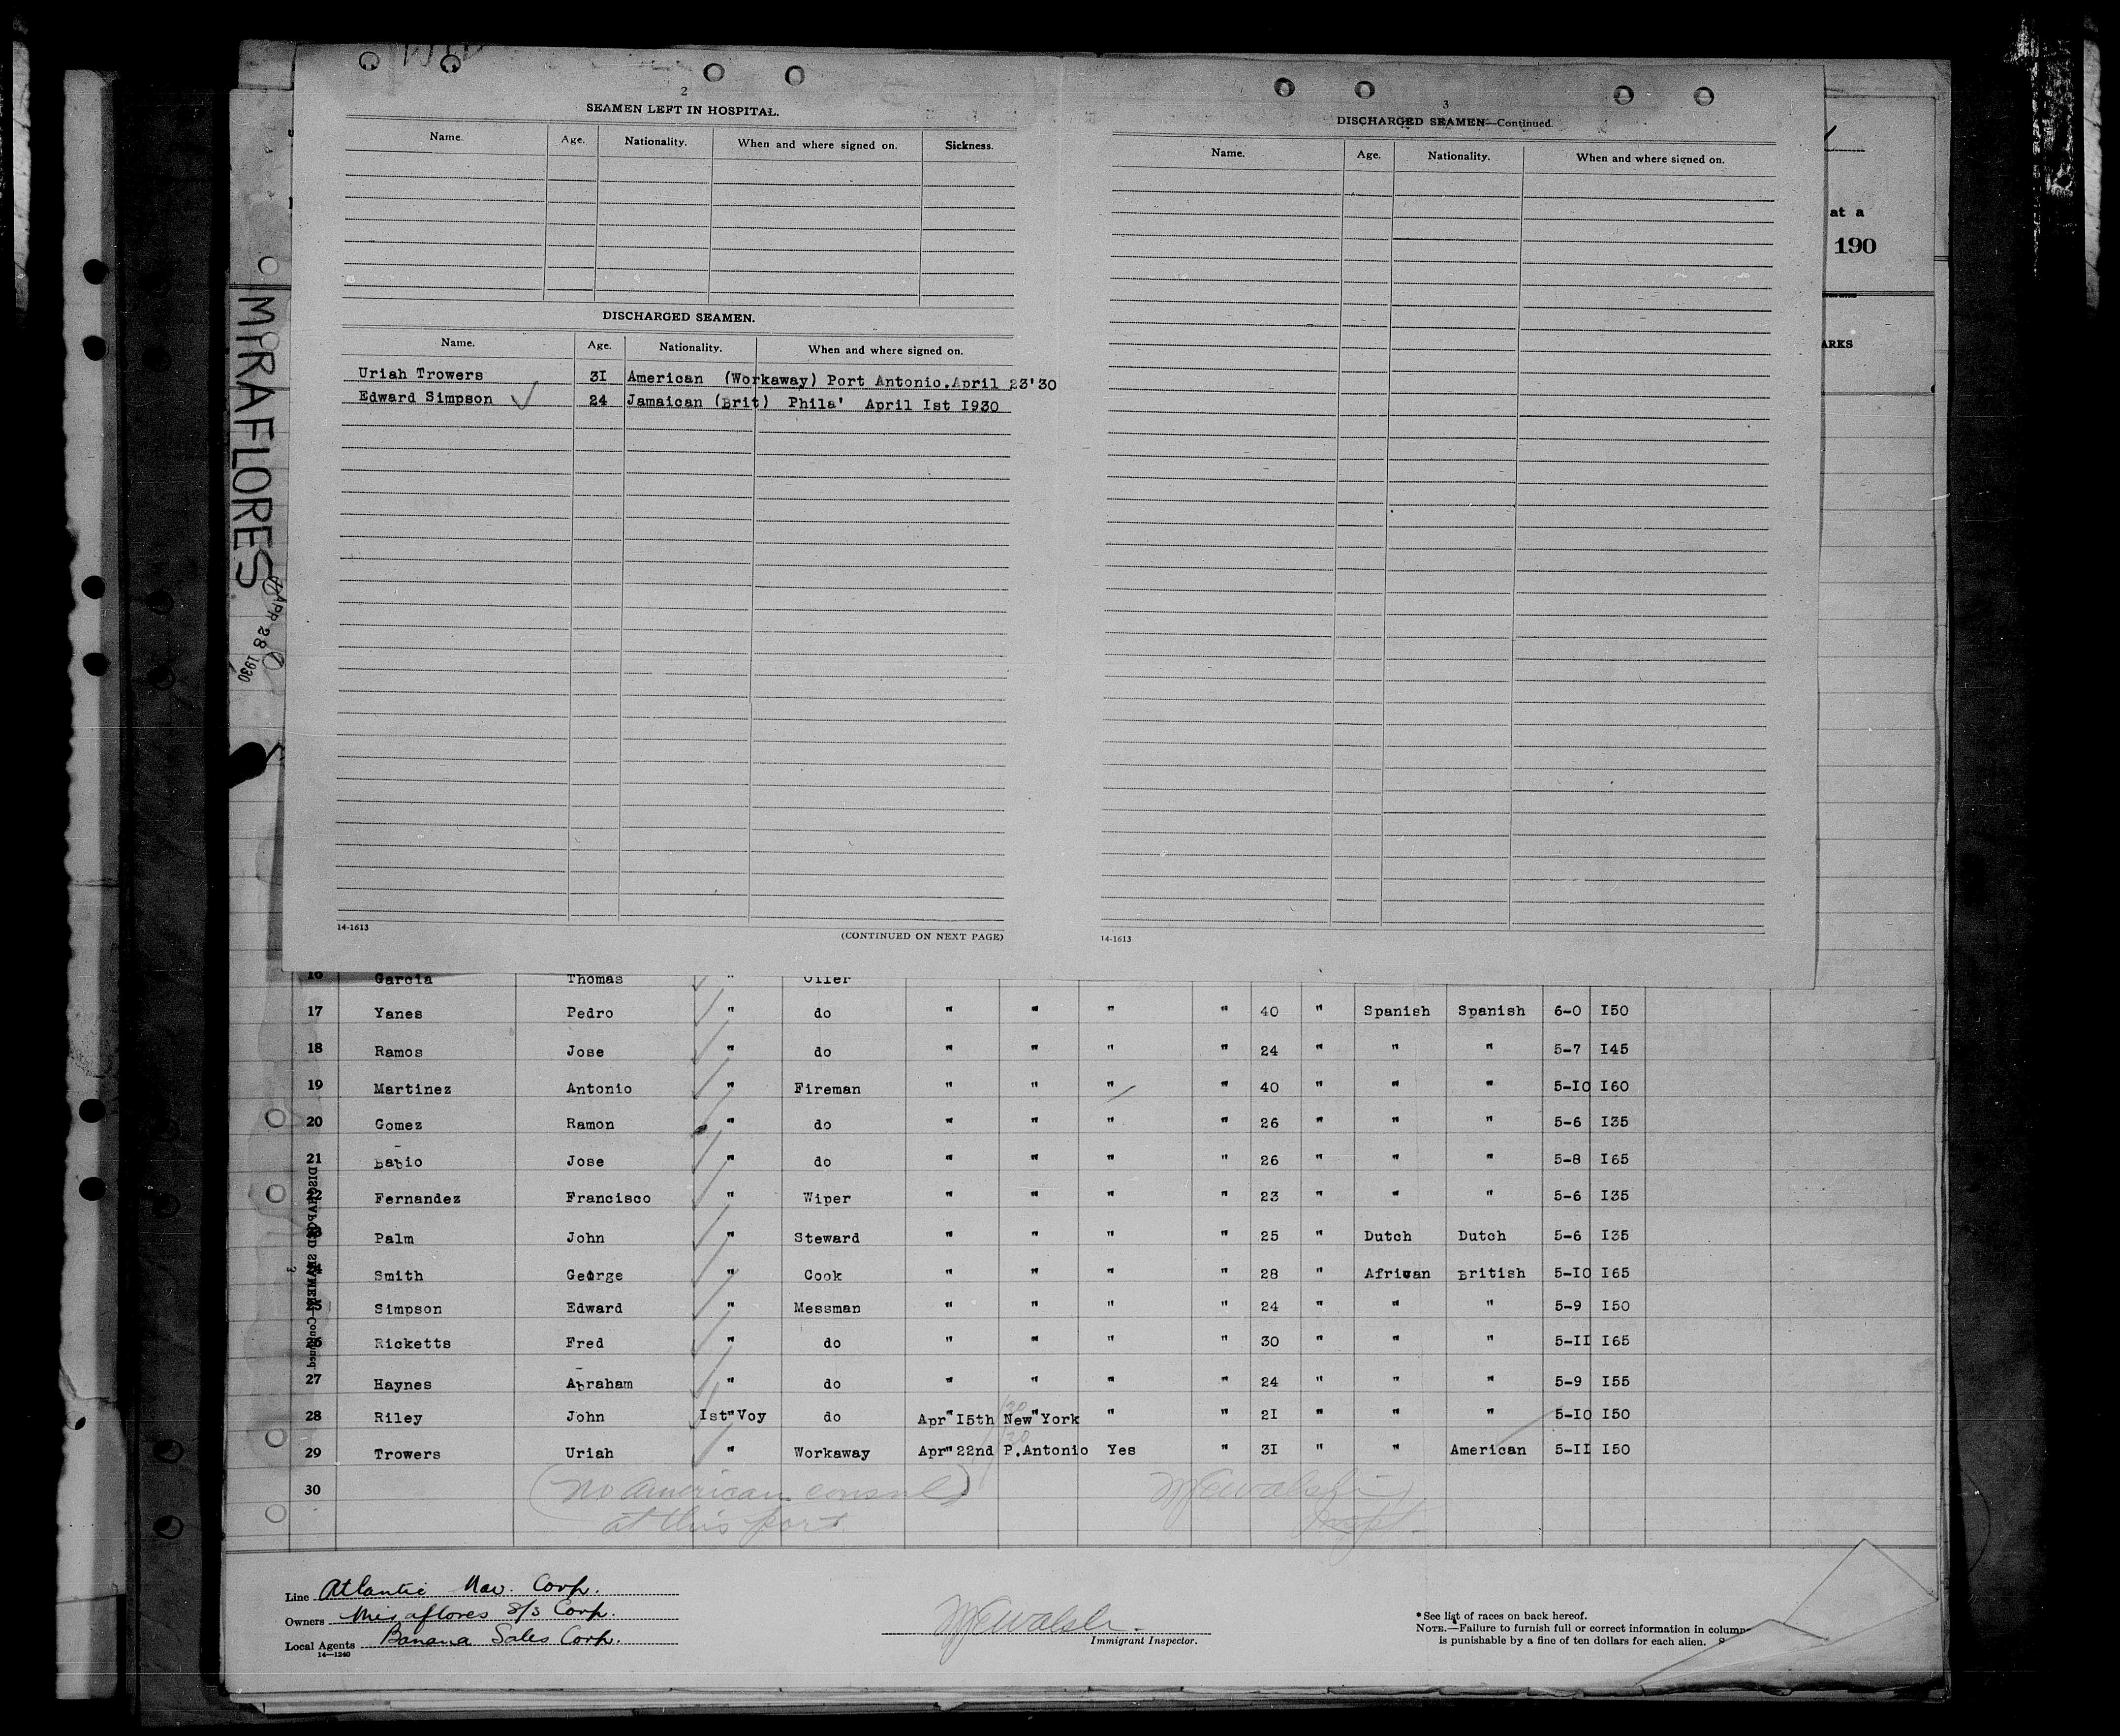 2
SEAMEN LEFT IN HOSPITAL.
Name. Age. Nationality. When and where signed on. Sickness.
DISCHARGED SEAMEN.
Name. Age. Nationality. When and where signed on.
Uriah Trowers 3I American (Workaway) Port Antonio.April 23'30
Edward Simpson 24 Jamaican (Brit) Phila' April Ist I930
14-1613
(CONTINUED ON NEXT PAGE)
3
DISCHARGED SEAMEN—Continued.
Name. Age. Nationality. When and where signed on.
14-1613
at a
190
ARKS
MIRAFLORES
APR 28 1930
16 Garcia Thomas " Oiler
17 Yanes Pedro " do " " " " 40 " Spanish Spanish 6-0 I50
18 Ramos Jose " do " " " " 24 " " " 5-7 I45
19 Martinez Antonio " Fireman " " " " 40 " " " 5-IO I60
20 Gomez Ramon " do " " " " 26 " " " 5-6 I35
21 Babio Jose " do " " " " 26 " " " 5-8 I65
22 Fernandez Francisco " Wiper " " " " 23 " " " 5-6 I35
Palm John " Steward " " " " 25 " Dutch Dutch 5-6 I35
24 Smith George " Cook " " " " 28 " African British 5-IO I65
25 Simpson Edward " Messman " " " " 24 " " " 5-9 I50
26 Ricketts Fred " do " " " " 30 " " " 5-II I65
27 Haynes Abraham " do " " " " 24 " " " 5-9 I55
28 Riley John Ist"Voy do Apr"I5th New"York " " 2I " " " 5-IO I50
29 Trowers Uriah " Workaway Apr"22nd P.Antonio Yes " 3I " " American 5-II I50
30
(No American consul)
at this port
Inspt
DISCHARGED SEAMEN—Continued.
3
Line Atlantic Nav. Corp.
Owners Miraflores S/S Corp.
Local Agents Banana Sales Corp.
14—1240
Immigrant Inspector.
*See list of races on back hereof.
NOTE.—Failure to furnish full or correct information in columns
is punishable by a fine of ten dollars for each alien.